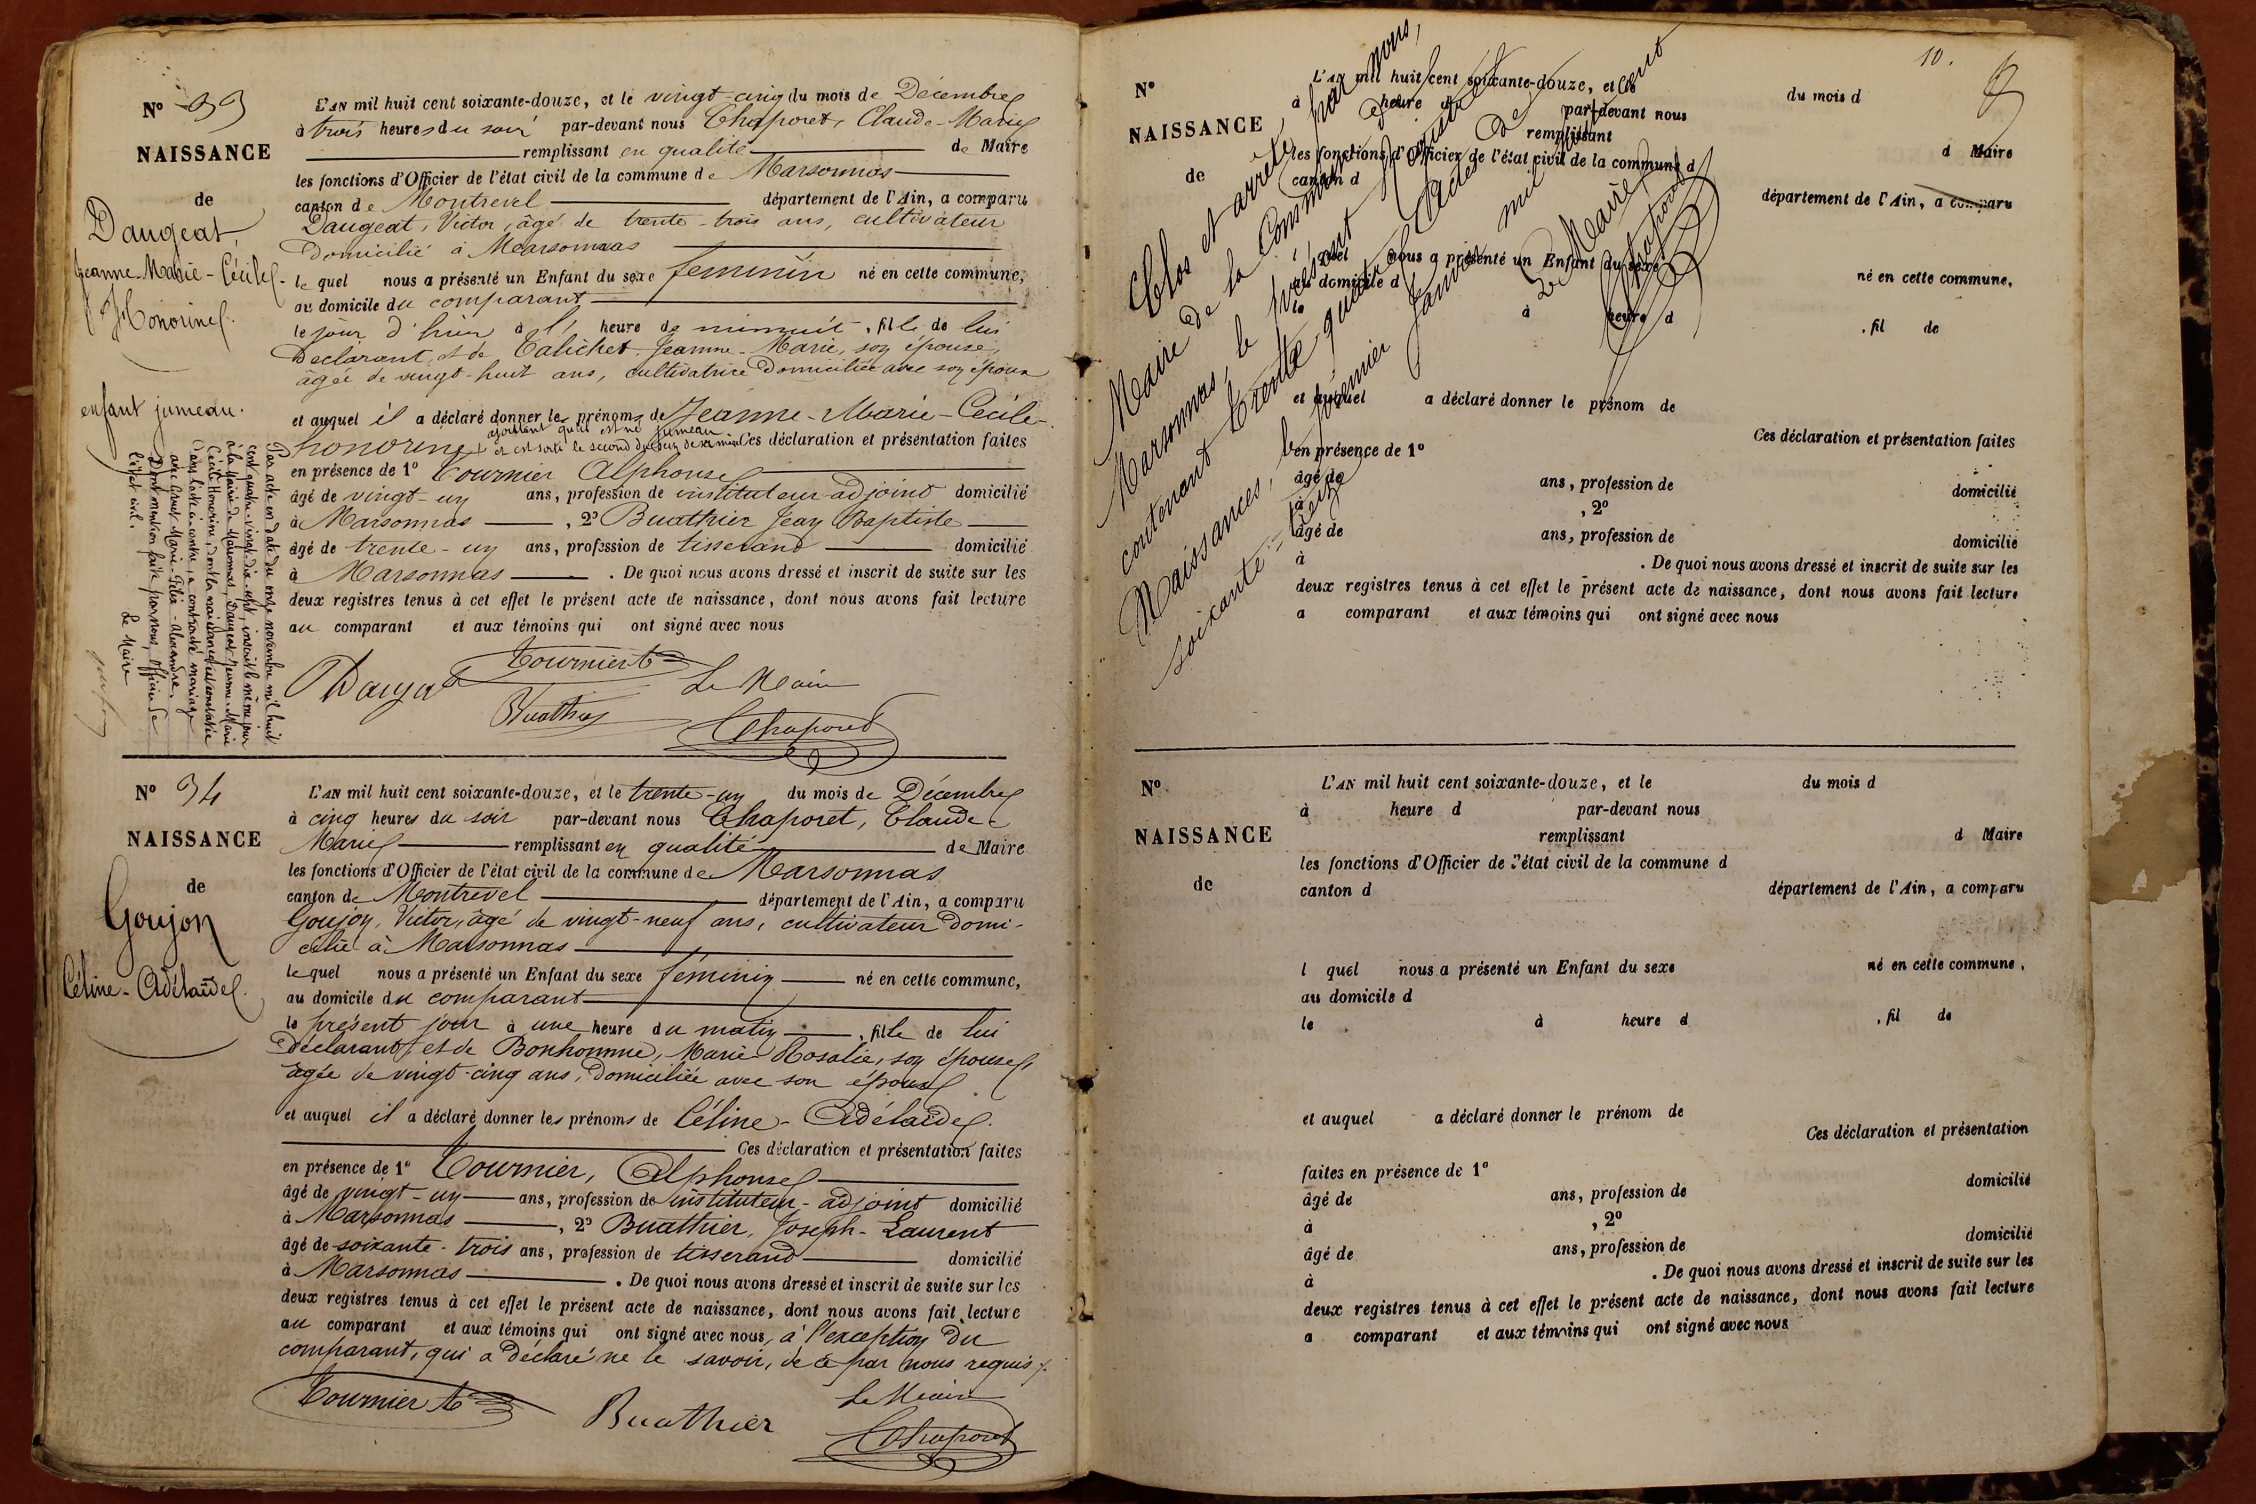 Nº 33
NAISSANCE
de
Daugeat,
Jeanne-Marie-Cécile-
Honorine.
enfant jumeau.
Par acte en date du onze novembre mil huit
cent quatre-vingt-dix-sept, inscrit le même jour
à la Mairie de Marsonnas, Daugeat Jeanne-Marie
Cécile Honorine, dont la naissance est constatée
dans l'acte ci-contre, a contracté mariage
avec Marie-Félix-Alexandre.
Dont mention faite par nous, officier de
l'état civil.
Le Maire
L'AN mil huit cent soixante-douze, et le vingt-cinq du mois de Décembre
à trois heures du soir par-devant nous Chaporet, Claude-Marie
remplissant en qualité de Maire
les fonctions d'Officier de l'état civil de la commune de Marsonnas
canton de Montrevel département de l'Ain, a comparu
Daugeat, Victor, âgé de trente-trois ans, cultivateur
domicilié à Marsonnas
le quel nous a présenté un Enfant du sexe féminin né en cette commune,
au domicile du comparant
le jour d'hier à l' heure de minuit, fille de lui
déclarant, et de Calichet, Jeanne-Marie, son épouse,
âgée de vingt-huit ans, cultivatrice domiciliée avec son époux
et auquel il a déclaré donner les prénoms de Jeanne-Marie-Cécile-
honorine, ajoutant qu'il est né jumeau
et est sorti le second du sein de sa mère Ces déclaration et présentation faites
en présence de 1º Tournier Alphonse
âgé de vingt-un ans, profession de instituteur-adjoint domicilié
à Marsonnas, 2º Buathier Jean Baptiste
âgé de trente-un ans, profession de tisserand domicilié
à Marsonnas. De quoi nous avons dressé et inscrit de suite sur les
deux registres tenus à cet effet le présent acte de naissance, dont nous avons fait lecture
au comparant et aux témoins qui ont signé avec nous
Daugeat Tournier A Le Maire
Buathier Chaporet
Nº 34
NAISSANCE
de
Goujon
Céline-Adélaïde.
L'AN mil huit cent soixante-douze, et le trente-un du mois de Décembre
à cinq heures du soir par-devant nous Chaporet, Claude
Marie remplissant en qualité de Maire
les fonctions d'Officier de l'état civil de la commune de Marsonnas
canton de Montrevel département de l'Ain, a comparu
Goujon, Victor, âgé de vingt-neuf ans, cultivateur domi-
cilié à Marsonnas
lequel nous a présenté un Enfant du sexe féminin né en cette commune,
au domicile du comparant
le présent jour à une heure du matin, fille de lui
déclarant, et de Bonhomme, Marie-Rosalie, son épouse,
âgée de vingt-cinq ans, domiciliée avec son époux
et auquel il a déclaré donner les prénoms de Céline-Adélaïde.
Ces déclaration et présentation faites
en présence de 1º Tournier, Alphonse
âgé de vingt-un ans, profession de instituteur-adjoint domicilié
à Marsonnas, 2º Buathier, Joseph-Laurent
âgé de soixante-trois ans, profession de tisserand domicilié
à Marsonnas. De quoi nous avons dressé et inscrit de suite sur les
deux registres tenus à cet effet le présent acte de naissance, dont nous avons fait lecture
au comparant et aux témoins qui ont signé avec nous, à l'exception du
comparant, qui a déclaré ne le savoir, de ce par nous requis.
Tournier A Buathier Le Maire
Chaporet
10.
Nº
NAISSANCE
de
L'AN mil huit cent soixante-douze, et le du mois d
à heure d par-devant nous
remplissant d Maire
les fonctions d'Officier de l'état civil de la commune d
canton d département de l'Ain, a comparu
l quel nous a présenté un Enfant du sexe né en cette commune,
au domicile d
le à heure d , fil de
et auquel a déclaré donner le prénom de
Ces déclaration et présentation faites
en présence de 1º
âgé de ans, profession de domicilié
à , 2º
âgé de ans, profession de domicilié
à . De quoi nous avons dressé et inscrit de suite sur les
deux registres tenus à cet effet le présent acte de naissance, dont nous avons fait lecture
a comparant et aux témoins qui ont signé avec nous
Clos et arrêté par nous,
Maire de la Commune de
Marsonnas, le présent registre
contenant trente quatre Actes de
Naissances, le premier Janvier mil huit cent
soixante-treize
Le Maire
Chaporet
Nº
NAISSANCE
de
L'AN mil huit cent soixante-douze, et le du mois d
à heure d par-devant nous
remplissant d Maire
les fonctions d'Officier de l'état civil de la commune d
canton d département de l'Ain, a comparu
l quel nous a présenté un Enfant du sexe né en cette commune,
au domicile d
le à heure d , fil de
et auquel a déclaré donner le prénom de
Ces déclaration et présentation
faites en présence de 1º
âgé de ans, profession de domicilié
à , 2º
âgé de ans, profession de domicilié
à . De quoi nous avons dressé et inscrit de suite sur les
deux registres tenus à cet effet le présent acte de naissance, dont nous avons fait lecture
a comparant et aux témoins qui ont signé avec nous